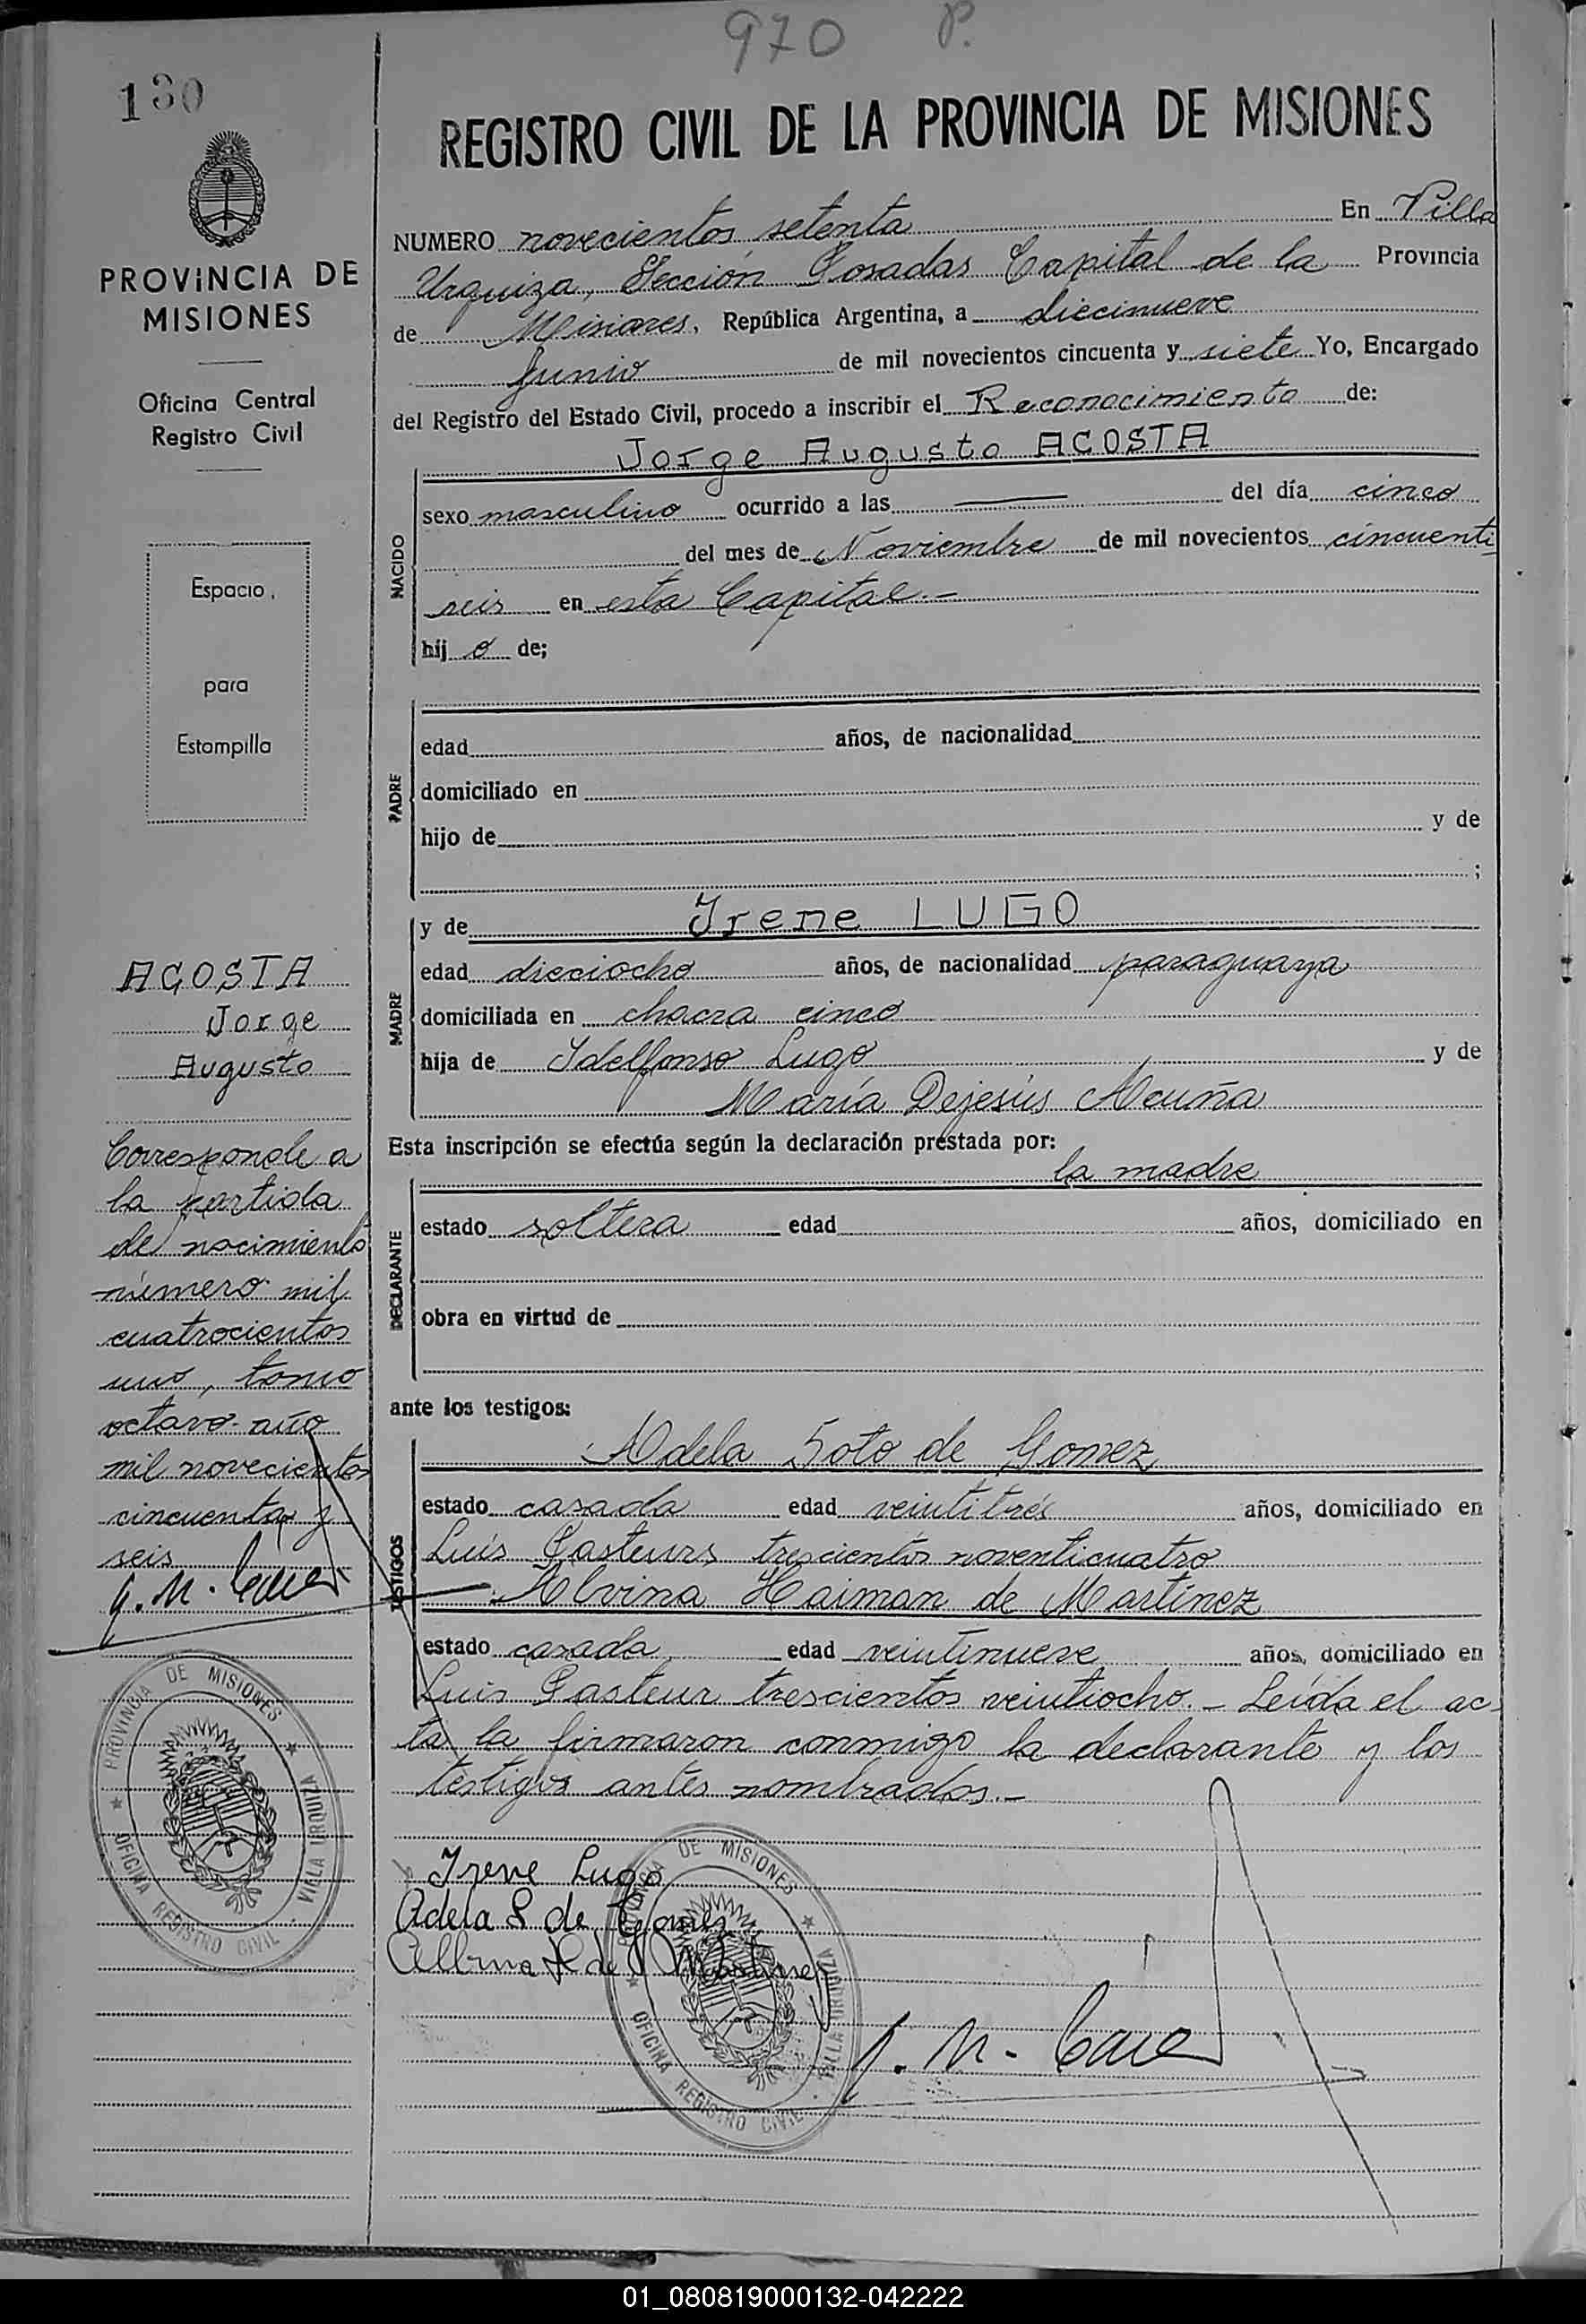 970 P.
130
REGISTRO CIVIL DE LA PROVINCIA DE MISIONES
PROVINCIA DE
MISIONES
Oficina Central
Registro Civil
Espacio
para
Estampilla
ACOSTA
Jorge
Augusto
Corresponde a
la partida
de nacimiento
número mil
cuatrocientos
uno, tomo
octavo año
mil novecientos
cincuenta y
seis
PROVINCIA DE MISIONES
OFICINA REGISTRO CIVIL VILLA URQUIZA
NUMERO novecientos setenta En Villa
Urquiza, Sección Posadas Capital de la Provincia
de Misiones, República Argentina, a diecinueve
Junio de mil novecientos cincuenta y siete Yo, Encargado
del Registro del Estado Civil, procedo a inscribir el Reconocimiento de:
Jorge Augusto ACOSTA
NACIDO
sexo masculino ocurrido a las —— del día cinco
del mes de Noviembre de mil novecientos cincuenti
seis en esta Capital.-
hij o de;
PADRE
edad años, de nacionalidad
domiciliado en
hijo de y de
;
MADRE
y de Irene LUGO
edad dieciocho años, de nacionalidad paraguaya
domiciliada en chacra cinco
hija de Idelfonso Lugo y de
María Dejesús Acuña
Esta inscripción se efectúa según la declaración prestada por:
la madre
DECLARANTE
estado soltera edad años, domiciliado en
obra en virtud de
ante los testigos:
TESTIGOS
Adela Soto de Gomez
estado casada edad veintitrés años, domiciliado en
Luis Pasteurs trescientos noventicuatro
Alvina Haiman de Martínez
estado casada edad veintinueve años, domiciliado en
Luis Pasteur trescientos veintiocho.- Leída el ac-
ta la firmaron conmigo la declarante y los
testigos antes nombrados.-
Irene Lugo
Adela S de Gomez
Albina H de Martinez
PROVINCIA DE MISIONES
OFICINA REGISTRO CIVIL VILLA URQUIZA
01_080819000132-042222